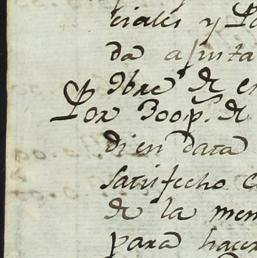 ciales y Po
da ajunta
Obre de en
Por 300 p. de
di en data
satisfecho
de la men
para hacer